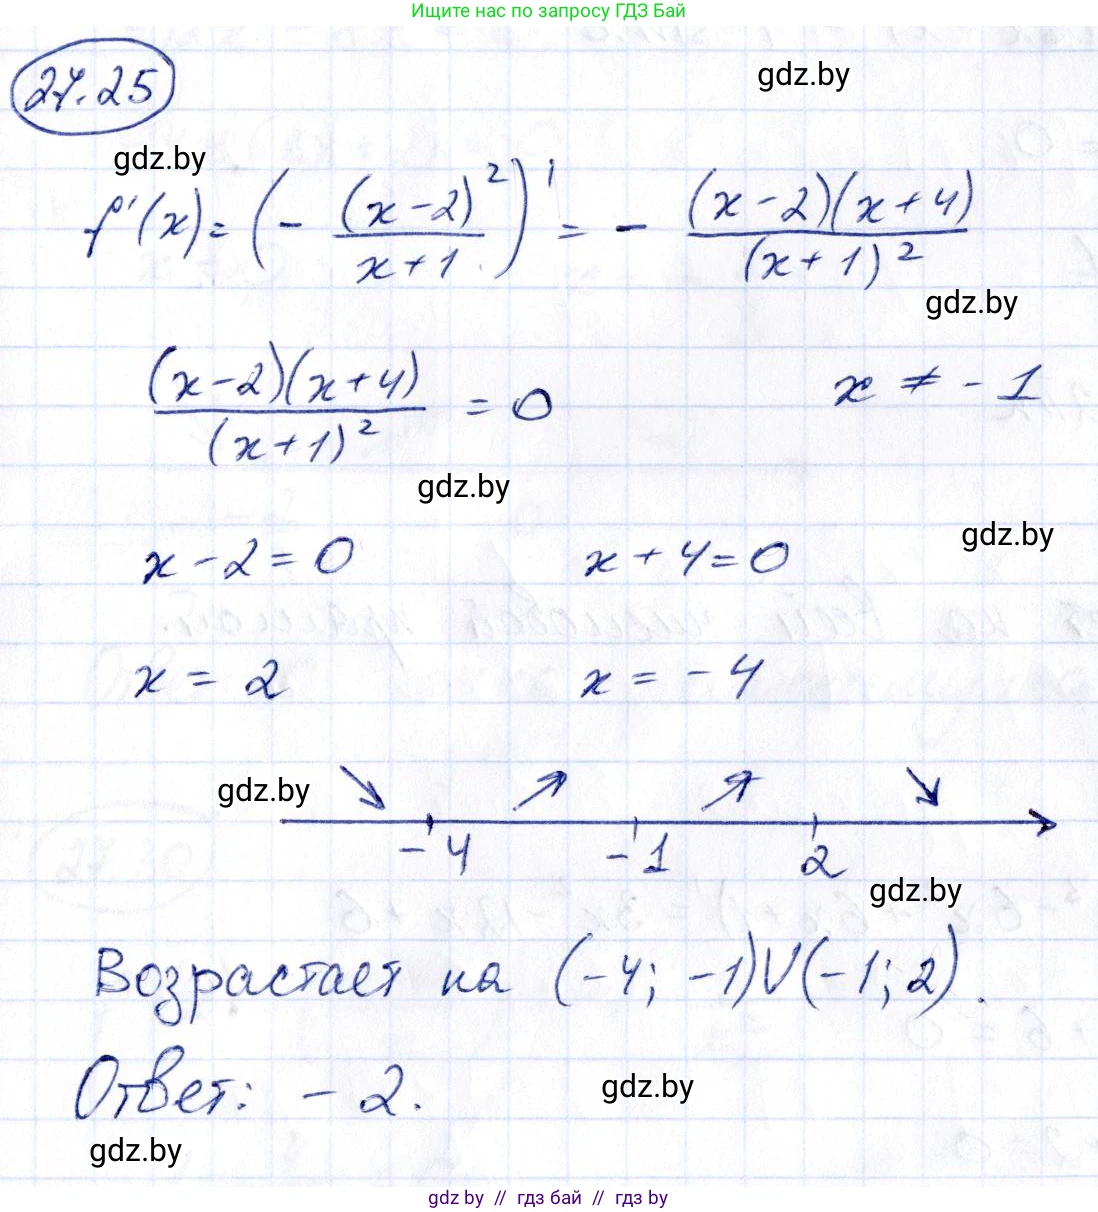 Ищите нас по запросу ГДЗ Бай
27.25
gdz.by
gdz.by
f'(x) = (- (x-2)²/(x+1))' = - (x-2)(x+4)/(x+1)²
gdz.by
(x-2)(x+4)/(x+1)² = 0 x ≠ -1
gdz.by
gdz.by
x - 2 = 0 x + 4 = 0
x = 2 x = -4
gdz.by
-4 -1 2
gdz.by
Возрастает на (-4; -1)∪(-1; 2).
Ответ: -2.
gdz.by
gdz.by
gdz by // гдз бай // гдз by